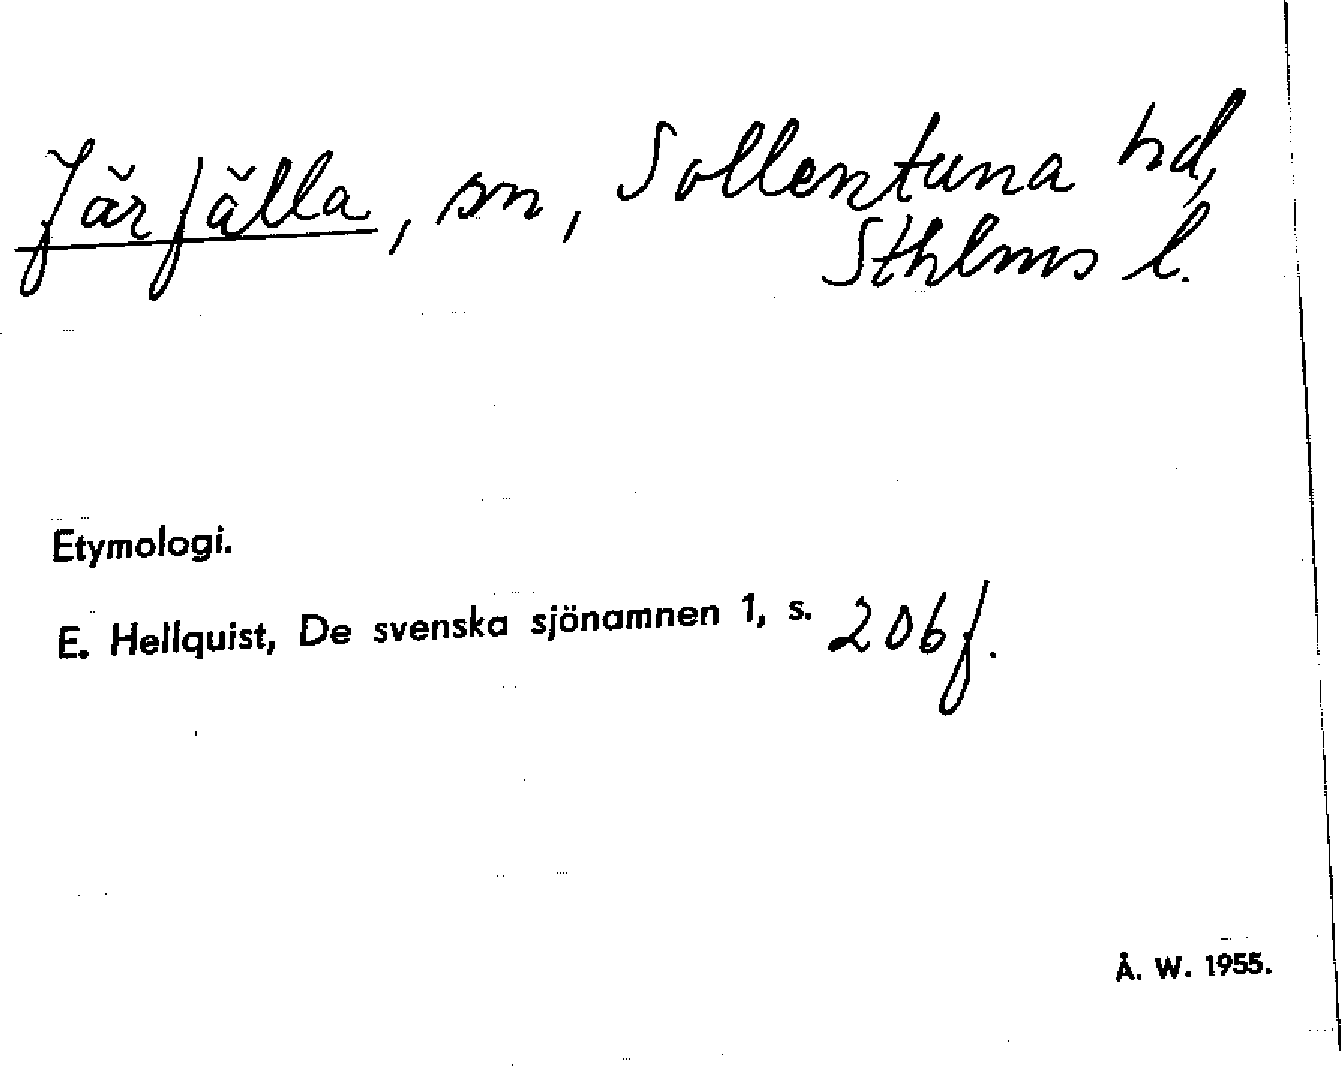 Järfälla, sn, Sollentuna hd,
Sthlms l.
Etymologi.
E. Hellquist, De svenska sjönamnen 1, s. 206 f.
Å. W. 1955.